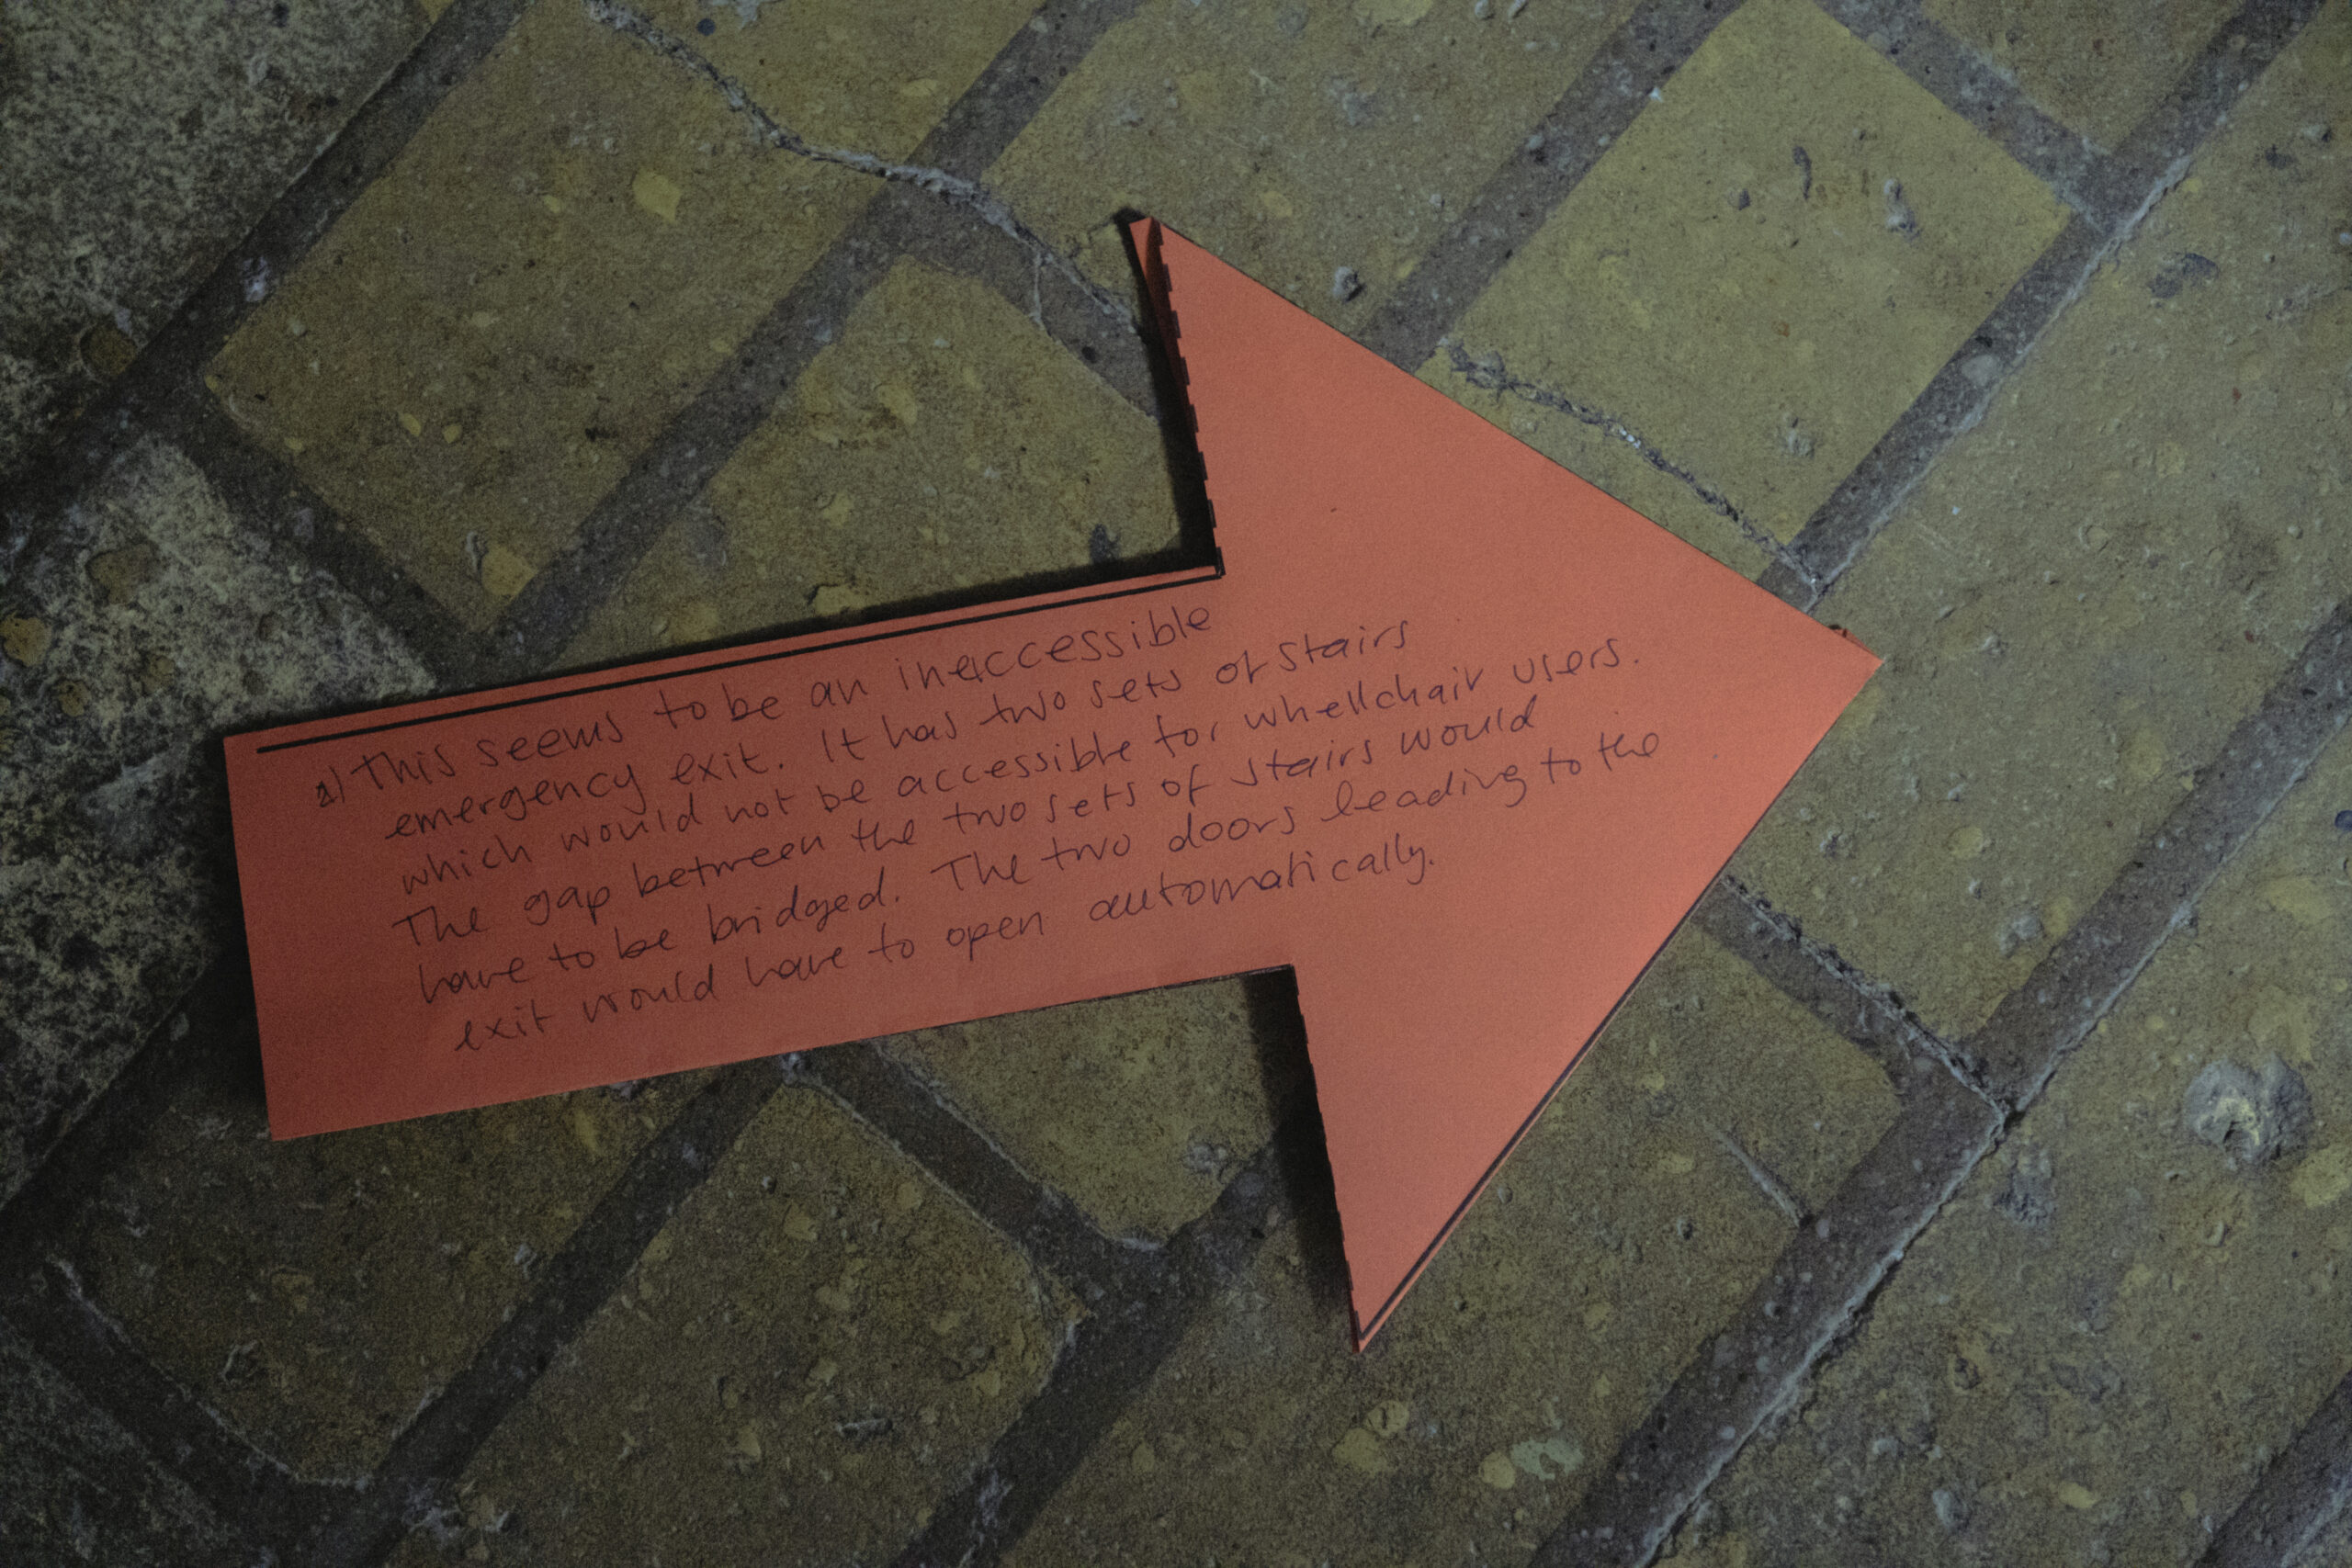 a) This seems to be an inaccessible
emergency exit. It has two sets of stairs
which would not be accessible for whellchair users.
The gap between the two sets of stairs would
have to be bridged. The two doors leading to the
exit would have to open automatically.